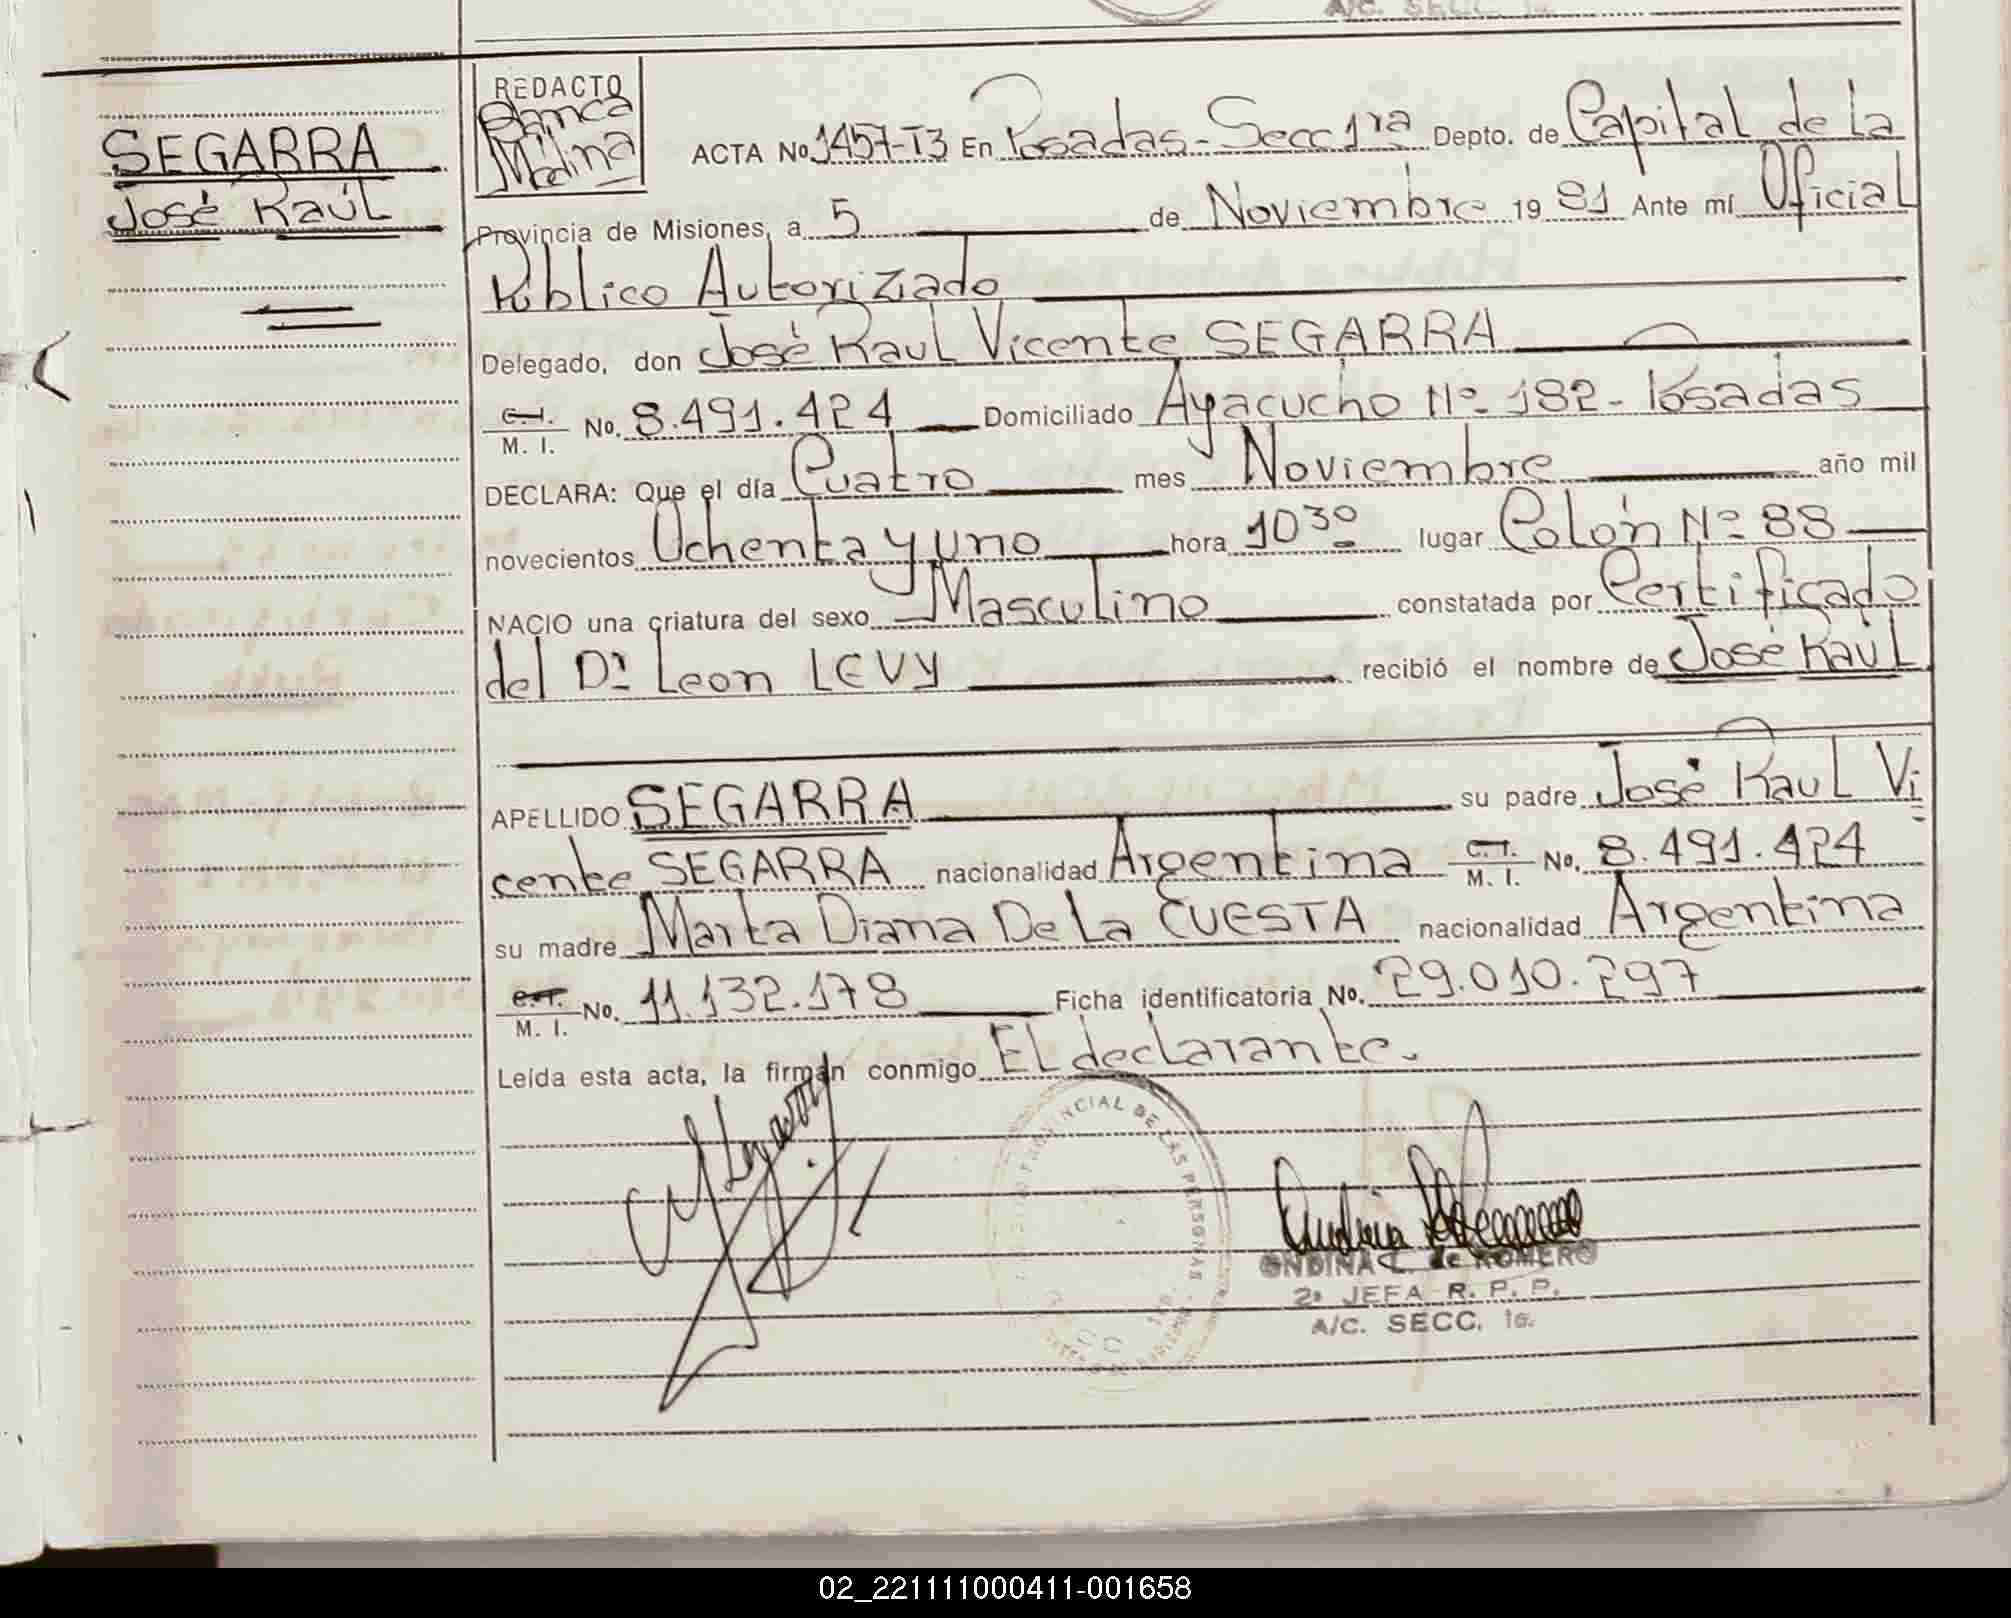 A/C. SECC. 1a.
SEGARRA
José Raúl
REDACTO
Blanca
Medina
ACTA No 1457-T3 En Posadas-Secc 1ra Depto. de Capital de La
Provincia de Misiones, a 5 de Noviembre 19 81 Ante mí Oficial
Público Autorizado
Delegado, don José Raul Vicente SEGARRA
C.I. M. I. No. 8.491.424 Domiciliado Ayacucho Nº 182- Posadas
DECLARA: Que el día Cuatro mes Noviembre año mil
novecientos Ochenta y uno hora 10³⁰ lugar Colón Nº 88
NACIO una criatura del sexo Masculino constatada por Certificado
del Dr Leon LEVY recibió el nombre de José Raúl
APELLIDO SEGARRA su padre José Raul Vi
cente SEGARRA nacionalidad Argentina C.I. M. I. No. 8.491.424
su madre Marta Diana De La CUESTA nacionalidad Argentina
C.I. M. I. No. 11.132.178 Ficha identificatoria No. 29.010.297
Leída esta acta, la firman conmigo El declarante.
PROVINCIAL DE LAS PERSONAS
ONDINA L. de ROMERO
2ª JEFA R. P. P.
A/C. SECC. 1a.
02_221111000411-001658